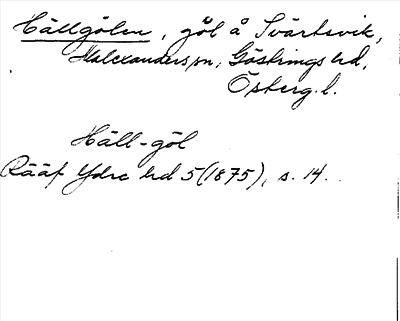 Hällgölen, göl å Svärtsvik,
Malexanders sn, Göstrings hd,
Österg. l.
Häll-göl
Rääf Ydre hd 5 (1875), s. 14.